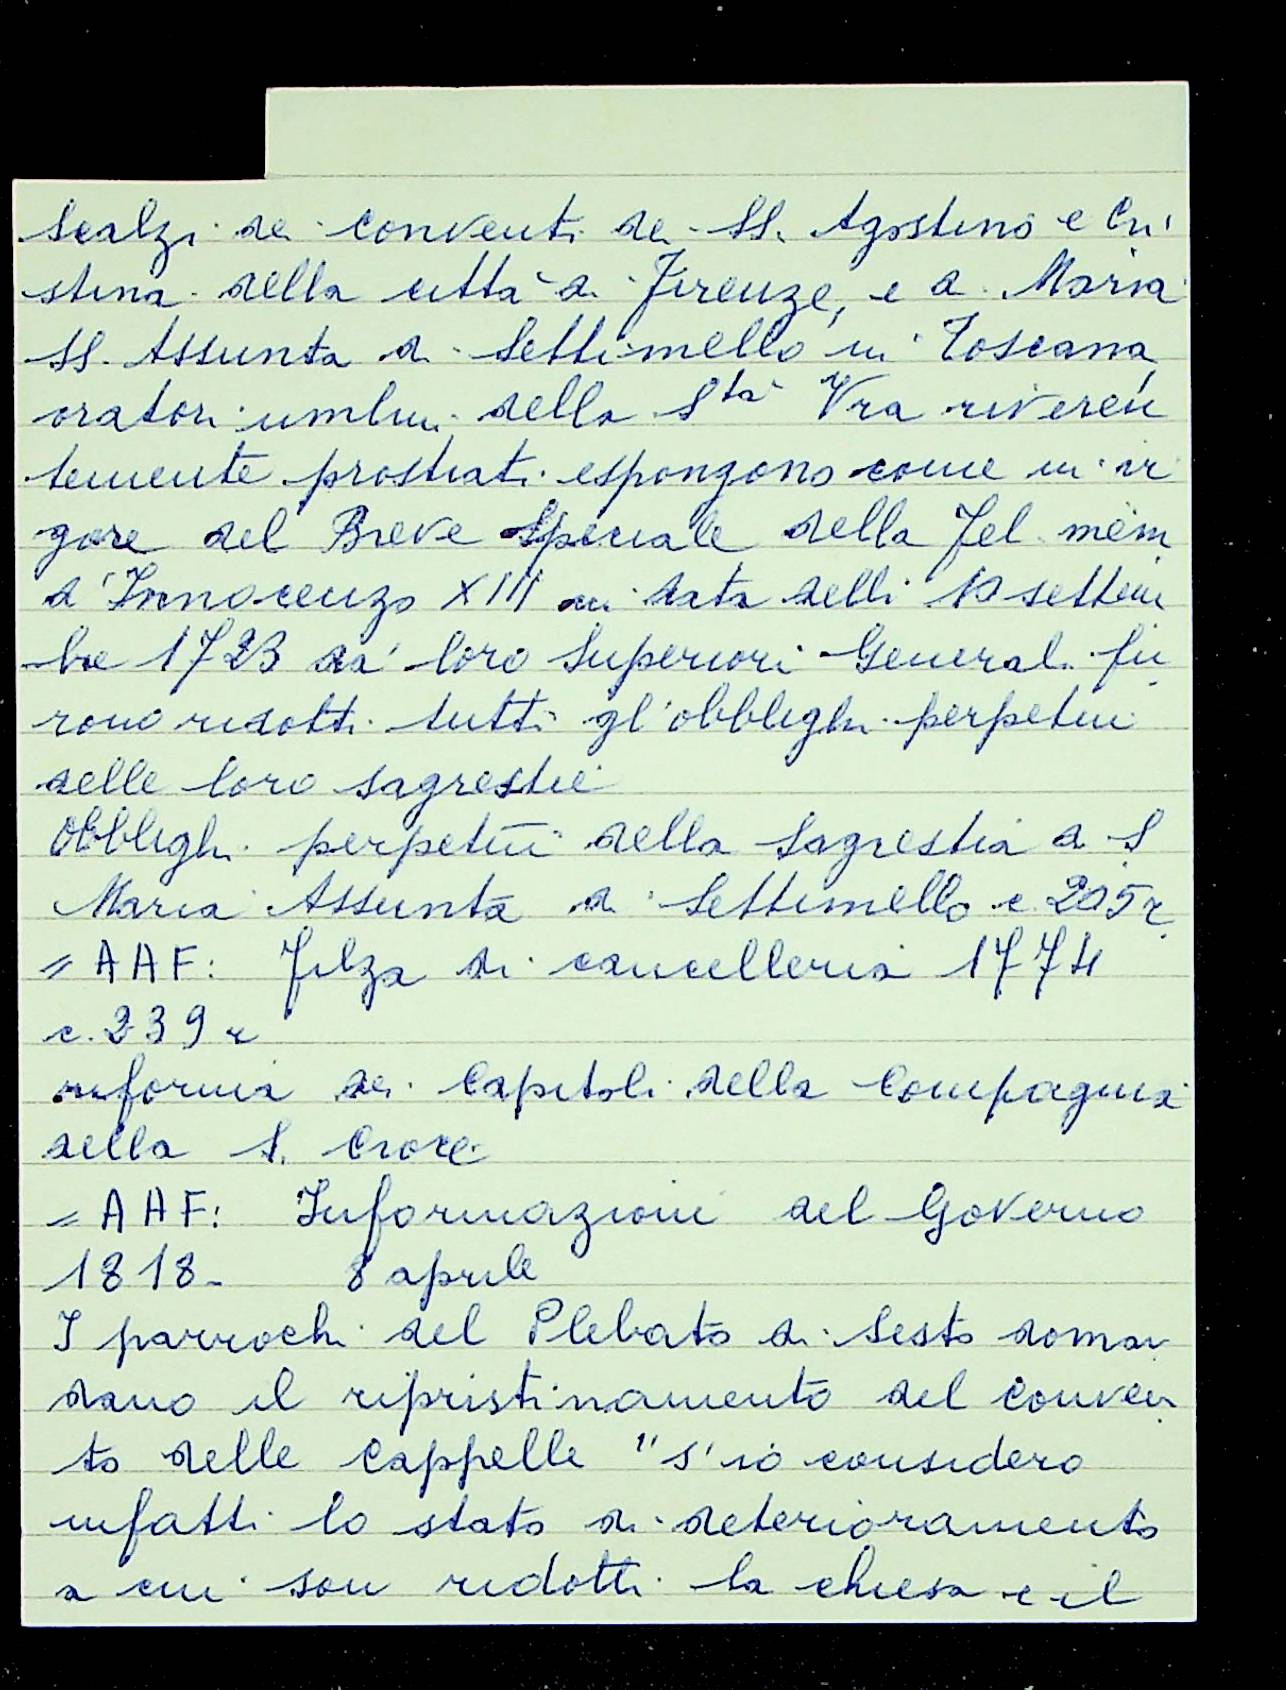 Scalzi dei conventi dei SS. Agostino e Cri
stina della città di Firenze, e di Maria
SS. Assunta di Settimello in Toscana,
oratori umlmi della Stà Vra riveren
temente prostrati espongono come in vi
gore del Breve Speciale della Fel. mem.
d'Innocenzo XIII in data delli 10 settem
bre 1723 da' loro Superiori Generali fu
rono ridotti tutti gl'obblighi perpetui
delle loro sagrestie
Obblighi perpetui della Sagrestia di S.
Maria Assunta di Settimello c. 205r.
= AAF: Filza di cancelleria 1774
c. 239r
riforma dei Capitoli della Compagnia
della S. Croce
= AAF: Informazioni del Governo
1818 - 8 aprile
I parrochi del Plebato di Sesto doman
dano il ripristinamento del conven
to delle Cappelle "s'io considero
infatti lo stato di deterioramento
a cui son ridotti la chiesa e il